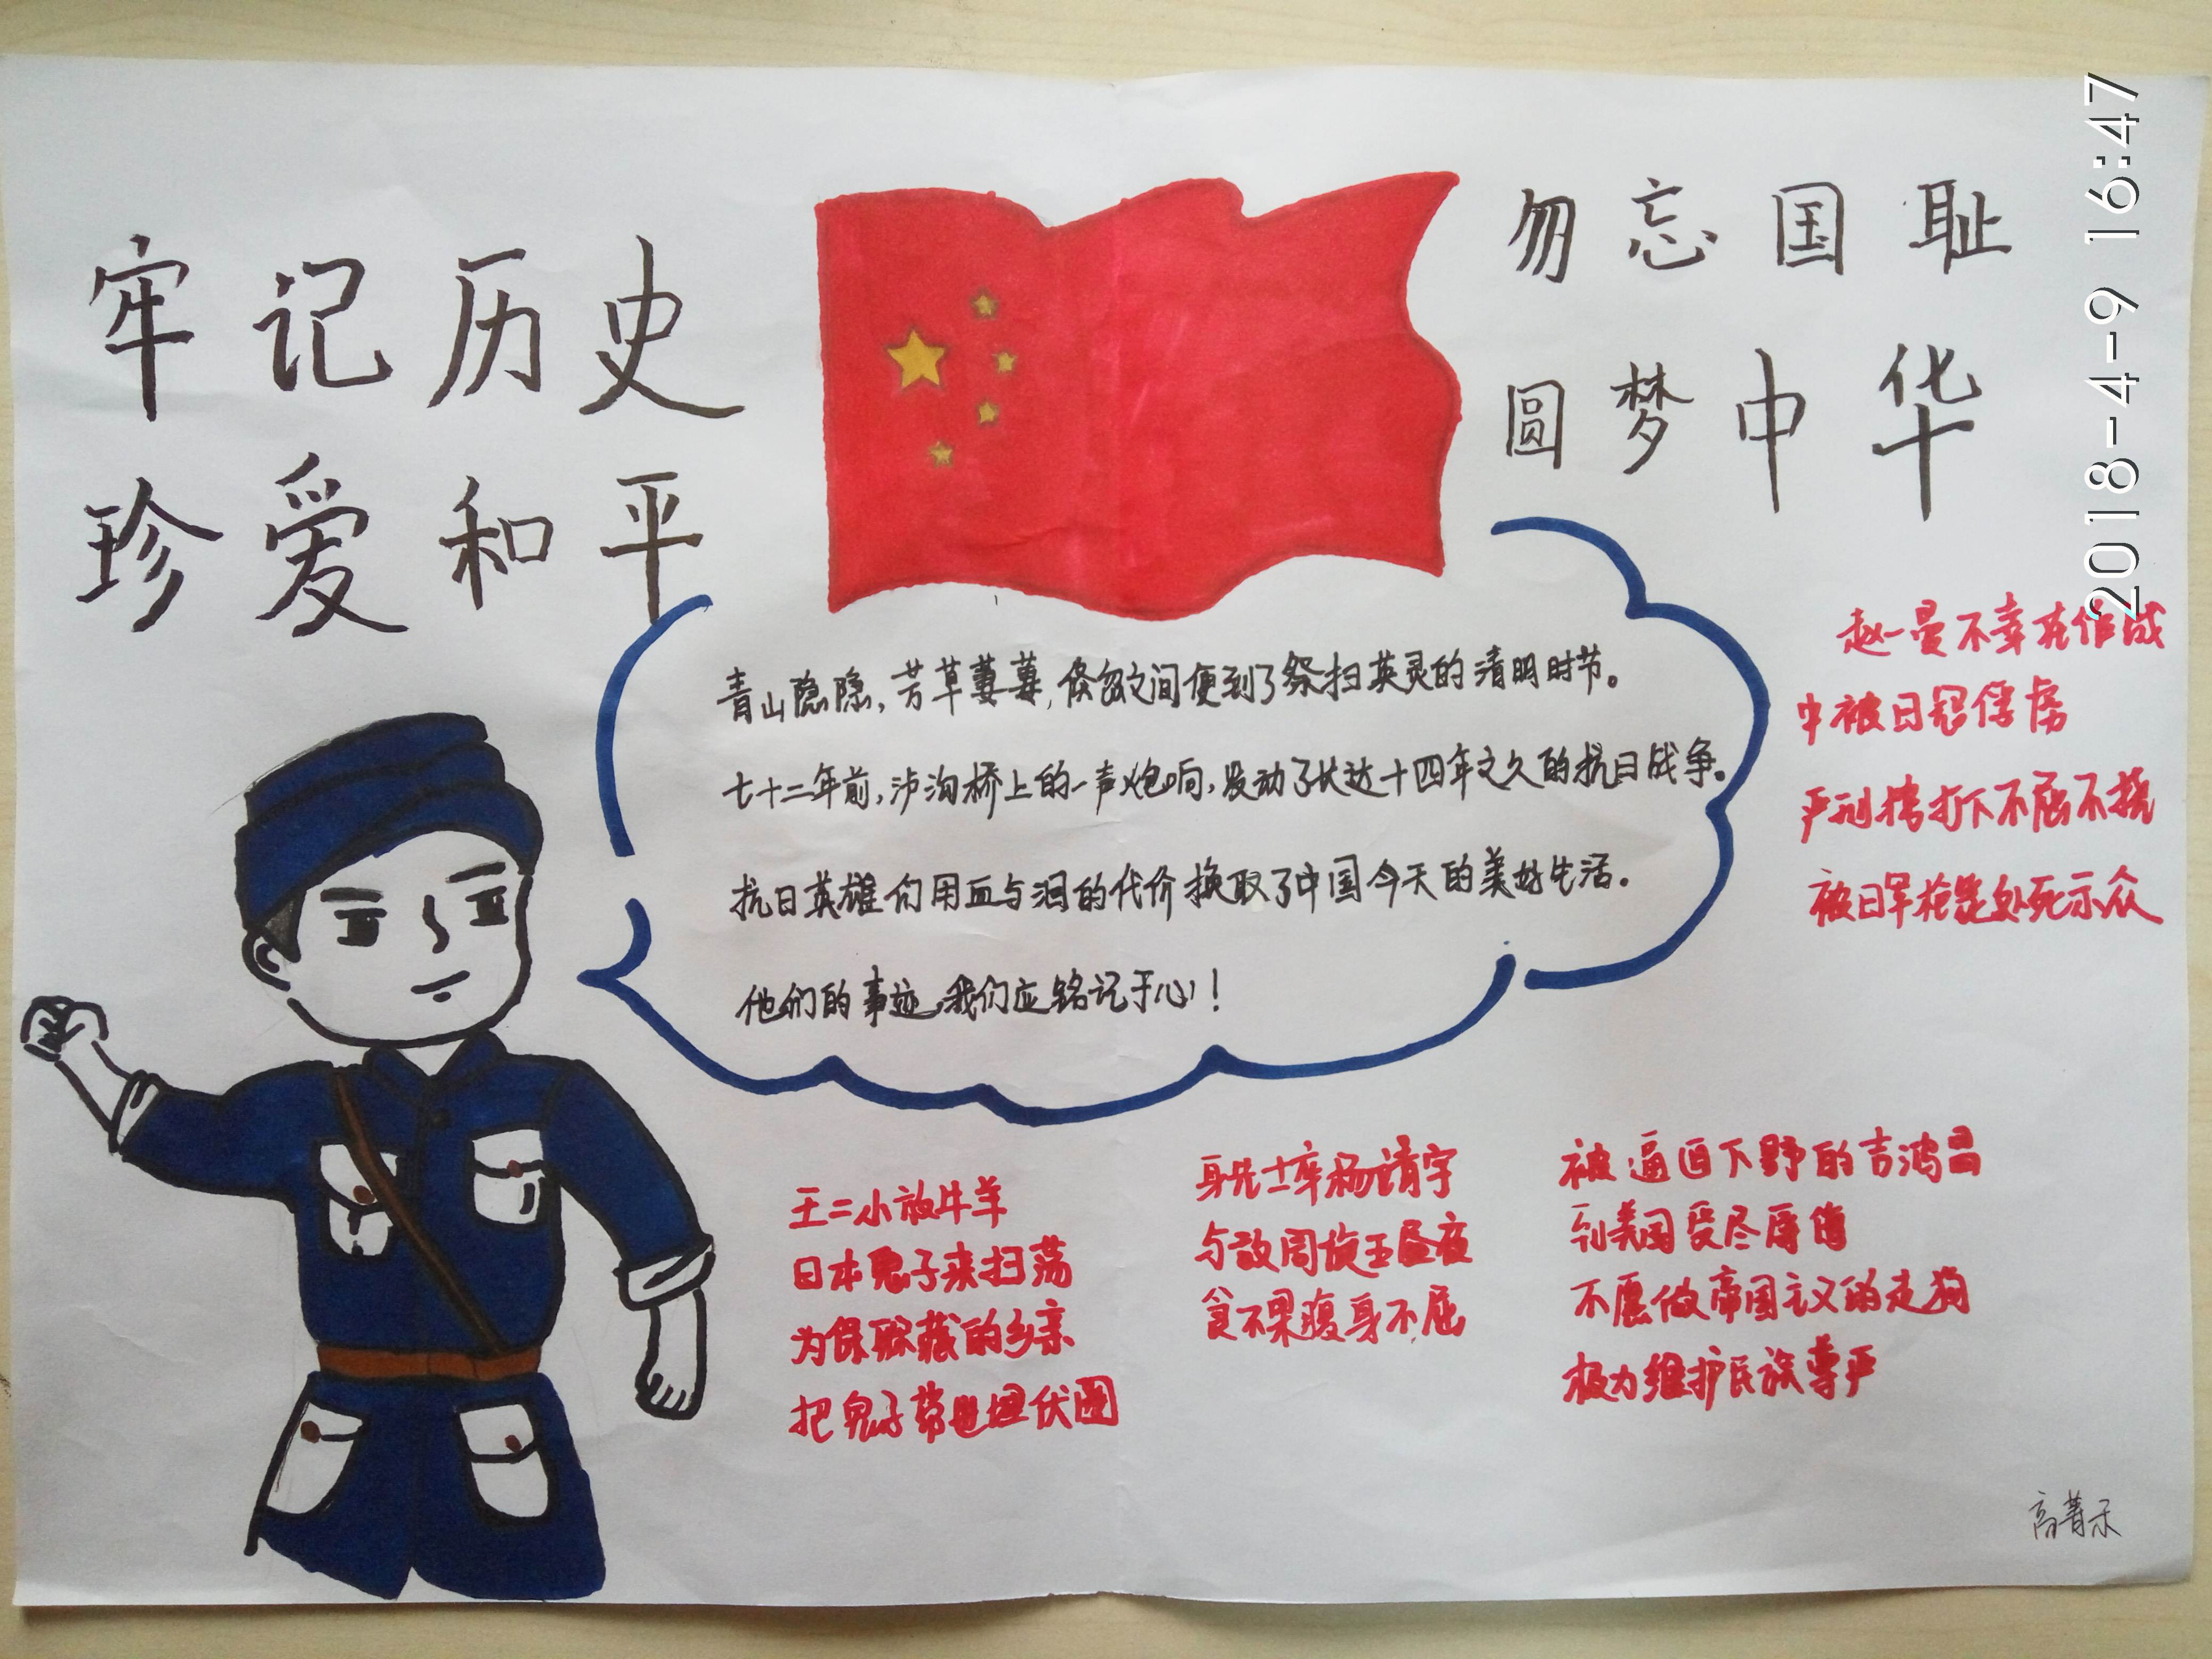 牢记历史
珍爱和平
勿忘国耻
圆梦中华
2018-4-9 16:47
青山隐隐,芳草萋萋,倏忽之间便到了祭扫英灵的清明时节。
七十二年前,泸沟桥上的一声炮响,发动了长达十四年之久的抗日战争。
抗日英雄们用血与泪的代价换取了中国今天的美好生活。
他们的事迹,我们应铭记于心!
赵一曼不幸在作战
中被日寇俘虏
严刑拷打下不屈不挠
被日军枪毙处死示众
王二小放牛羊
日本鬼子来扫荡
为保躲藏的乡亲
把鬼子带进埋伏圈
身先士卒杨靖宇
与敌周旋五昼夜
食不果腹身不屈
被逼迫下野的吉鸿昌
到美国受尽辱
不愿做帝国主义的走狗
极力维护民族尊严
高菁